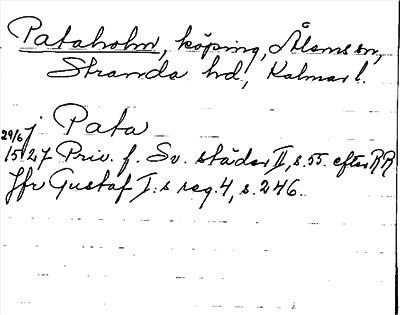 Pataholm, köping, Ålems sn,
Stranda hd, Kalmar l.
j Pata
29/6 1527 Priv. f. Sv. städer II, s. 55. efter RR
Jfr Gustaf I:s reg. 4, s. 246.